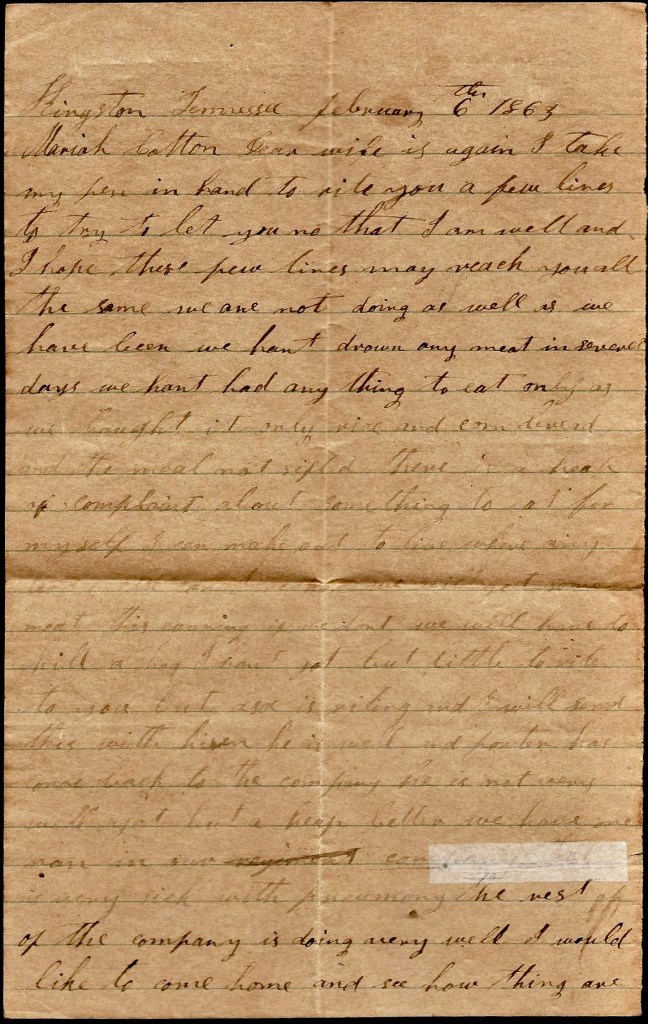 Kingston Tennissee february 6th 1863
Mariah Cotton Dear wife is again I take
my pen in hand to rite you a few lines
to try to let you no that I am well and
I hope these few lines may reach you all
the same we are not doing as well as we
have been we hant drown any meat in severel
days we hant had any thing to eat only as
we bought it only rice and corn bread
and the meal not sifted there is a heap
of complaint about something to at for
myself I can make out to live where any
we will get some
meat this evening if we dont we will have to
kill a hog I hant got but little to rite
to you but asa is riting and I will send
this with hisen he is well and porter has
come back to the company he is not very
well yet but a heap better we have one
man in our regiment company that
is very sick with pneumony the rest of
of the company is doing very well I would
like to come home and see how thing are